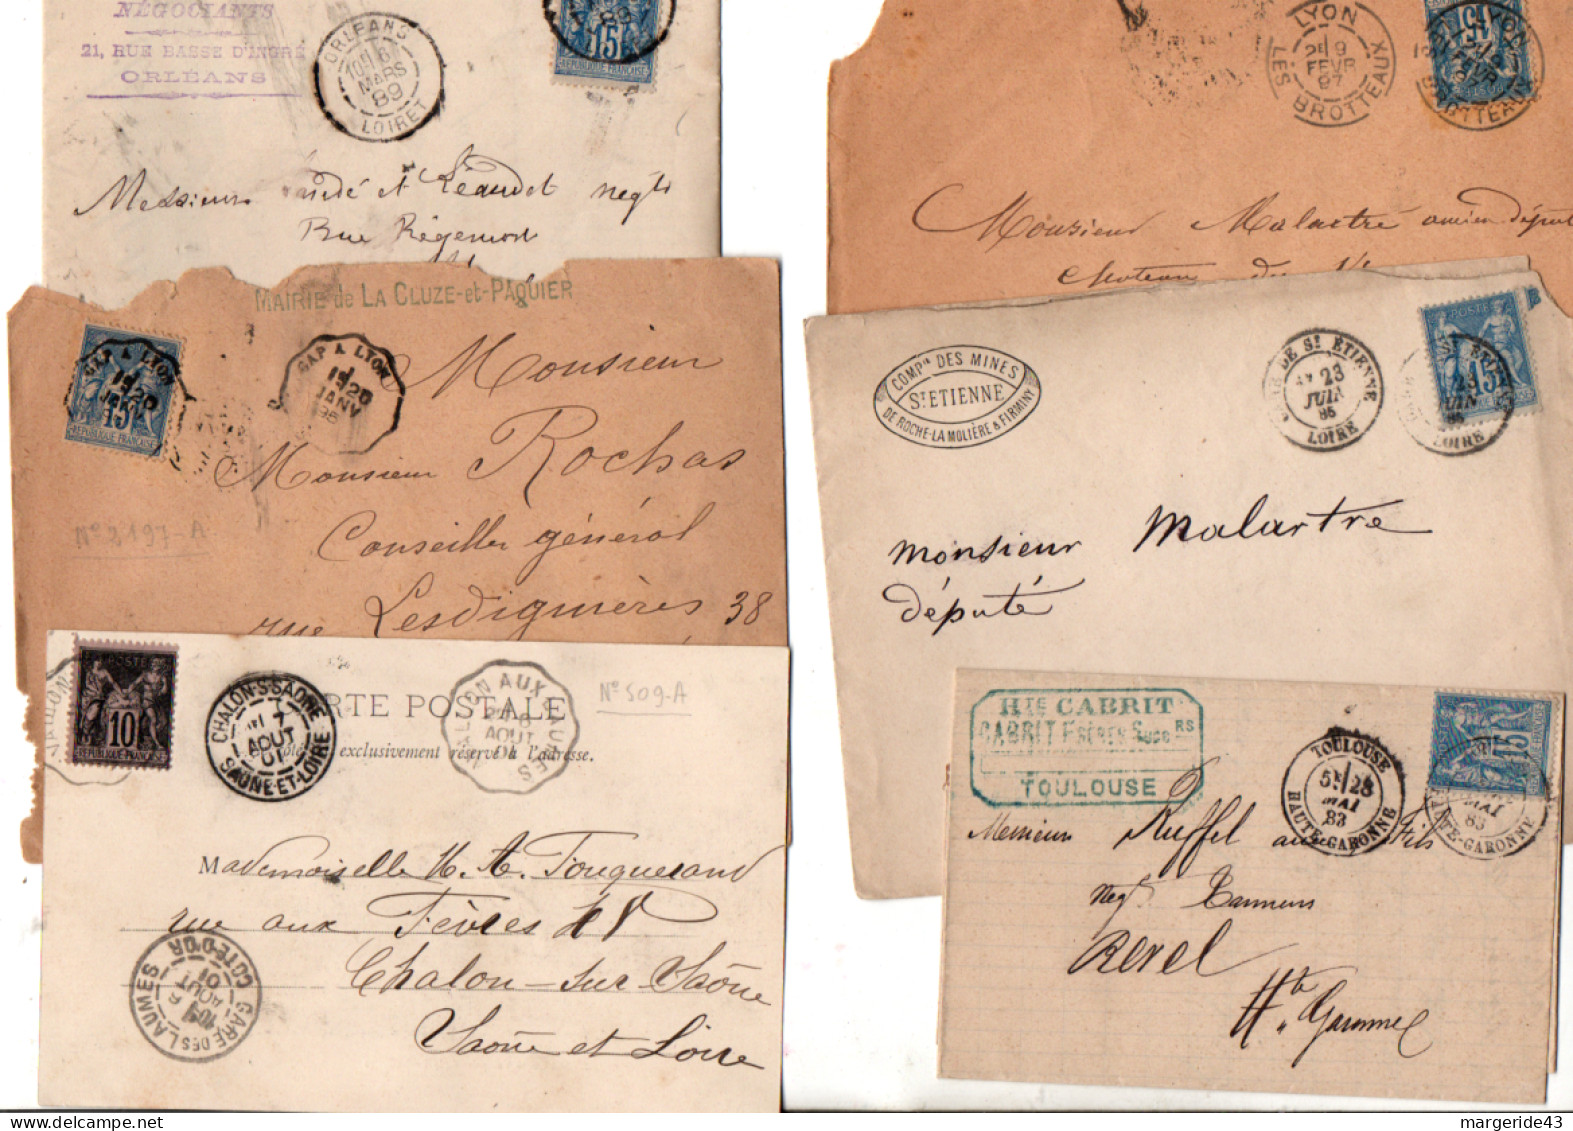 NÉGOCIANTS
21, RUE BASSE D'INGRÉ
ORLÉANS
ORLÉANS
MARS
89
LOIRET
15
RÉPUBLIQUE FRANÇAISE
Messieurs et Léaudet negts
Rue Régemort
LYON
9
FEVR
87
LES BROTTEAUX
15
LYON
BROTTEAUX
Monsieur Malartré ancien député
MAIRIE de LA CLUZE-et-PÂQUIER
GAP A LYON
20
15
RÉPUBLIQUE FRANÇAISE
GAP A LYON
20
JANV
Monsieur
Monsieur Rochas
Conseiller général
rue Lesdiguières 38
Nº 2197-A
COMPie DES MINES
St ETIENNE
DE ROCHE-LA MOLIÈRE & FIRMINY
DE St ETIENNE
23
JUIN
LOIRE
POSTE
15
JUIN
LOIRE
monsieur Malartre
député
POSTE
10
RÉPUBLIQUE FRANÇAISE
CHALON-S-SAÔNE
7
AOUT
01
SAÔNE-ET-LOIRE
CARTE POSTALE
exclusivement réservé à l'adresse.
AVALLON AUX LAUMES
6
AOUT
01
Nº 509-A
Mademoiselle
rue aux Fèvres
Chalon-sur-Saône
Saône et Loire
GARE DES LAUMES
6
AOUT
01
COTE D'OR
Hte CABRIT
CABRIT FRÈRES Succrs
TOULOUSE
TOULOUSE
5E 28
MAI
83
HAUTE-GARONNE
15
MAI
83
HAUTE-GARONNE
Messieurs Ruffel Fils
Negts Tanneurs
Revel
Hte Garonne
margeride43